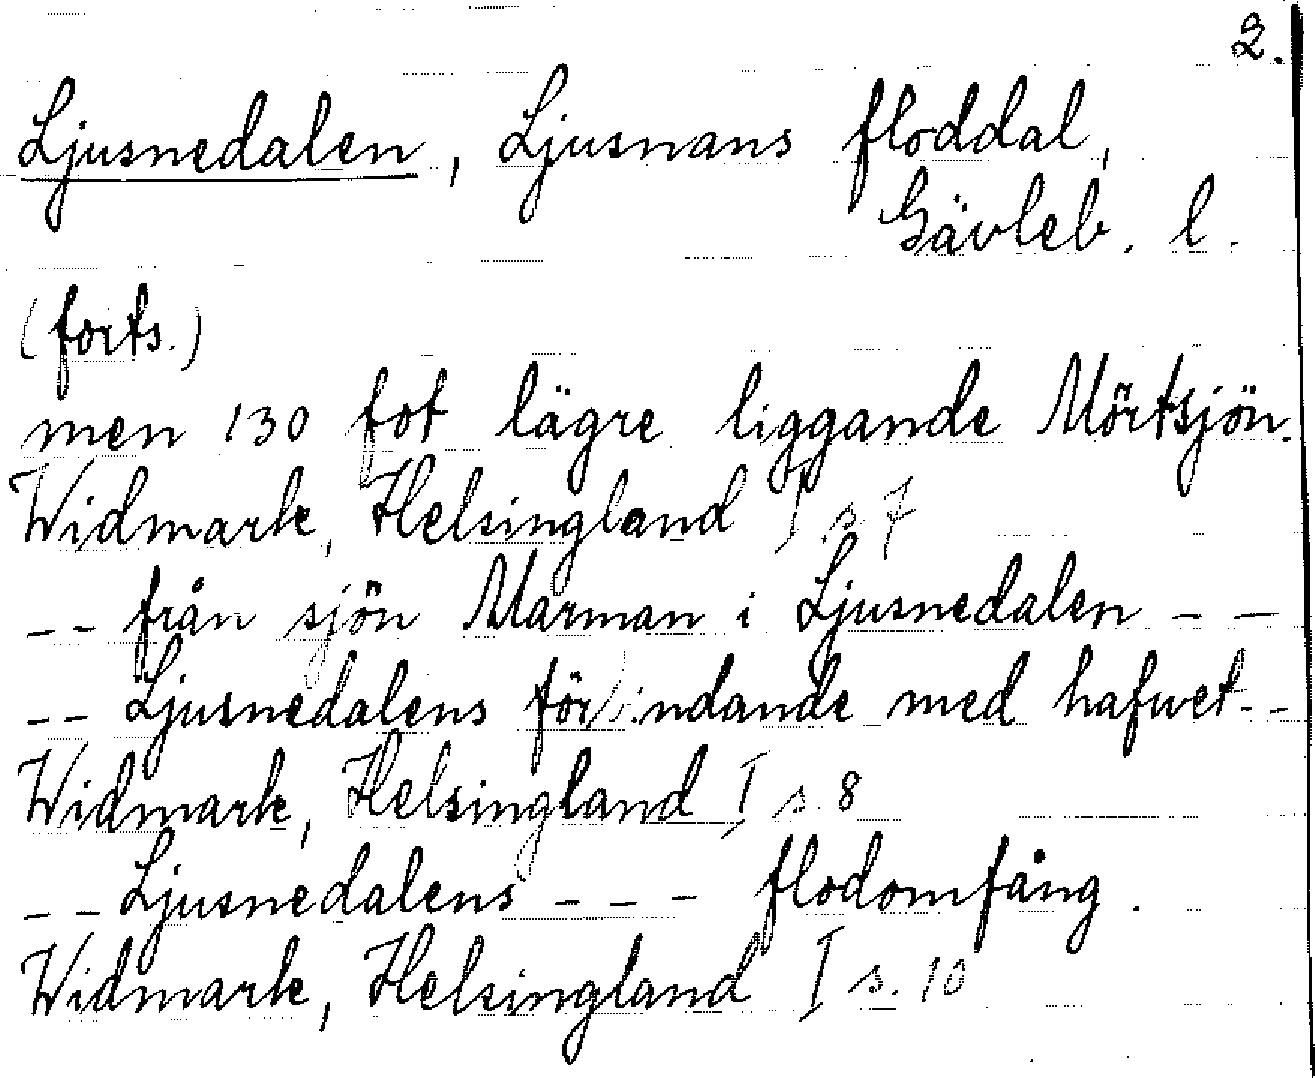 2.
Ljusnedalen, Ljusnans floddal,
Gävleb. l.
(forts.)
men 130 fot lägre liggande Mörtsjön.
Widmark, Helsingland I s. 7
-- från sjön Marman i Ljusnedalen --
-- Ljusnedalens förbindande med hafwet--
Widmark, Helsingland I s. 8
-- Ljusnedalens --- flodomfång.
Widmark, Helsingland I s. 10